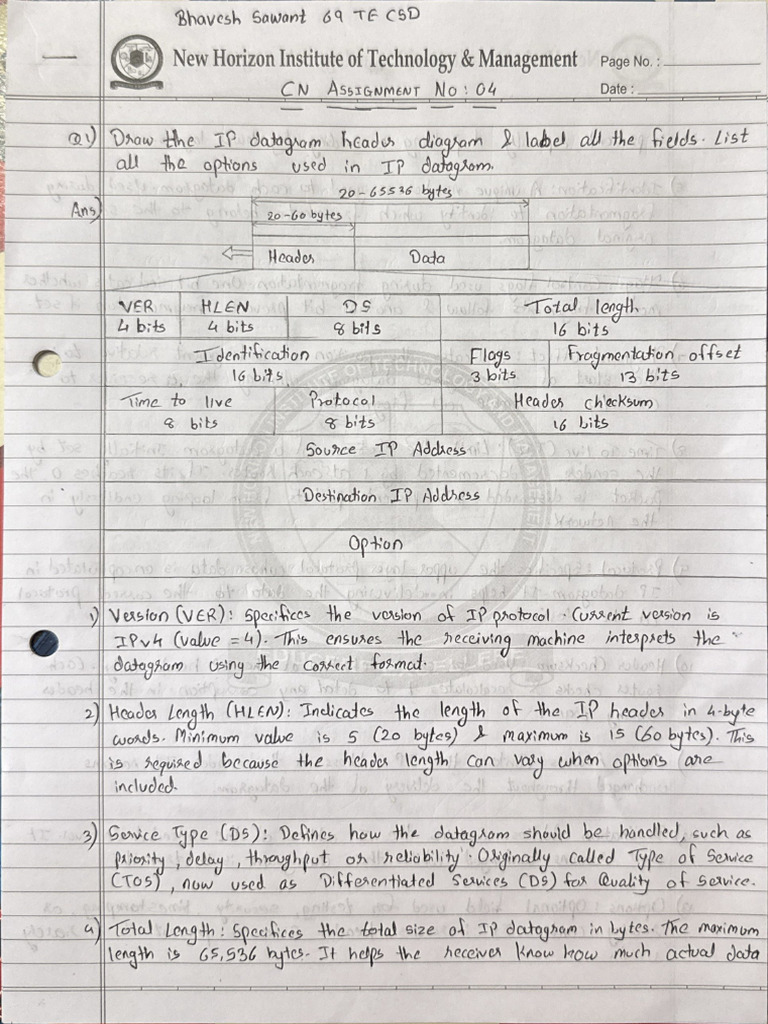 Bhavesh Sawant 69 TE CSD
New Horizon Institute of Technology & Management
Page No. :
CN ASSIGNMENT NO : 04
Date :
Q1) Draw the IP datagram header diagram & label all the fields. List
all the options used in IP datagram.
Ans)
20-65536 bytes
20-60 bytes
Header Data
VER HLEN DS Total length
4 bits 4 bits 8 bits 16 bits
Identification Flags Fragmentation offset
16 bits 3 bits 13 bits
Time to live Protocol Header checksum
8 bits 8 bits 16 bits
Source IP Address
Destination IP Address
Option
1) Version (VER) : Specifices the version of IP protocol. Current version is
IPv4 (value = 4). This ensures the receiving machine interprets the
datagram using the correct format.
2) Header Length (HLEN) : Indicates the length of the IP header in 4-byte
words. Minimum value is 5 (20 bytes) & maximum is 15 (60 bytes). This
is required because the header length can vary when options are
included.
3) Service Type (DS) : Defines how the datagram should be handled, such as
priority, delay, throughput or reliability. Originally called Type of Service
(TOS), now used as Differentiated Services (DS) for Quality of service.
4) Total Length : Specifices the total size of IP datagram in bytes. The maximum
length is 65,536 bytes. It helps the receiver know how much actual data